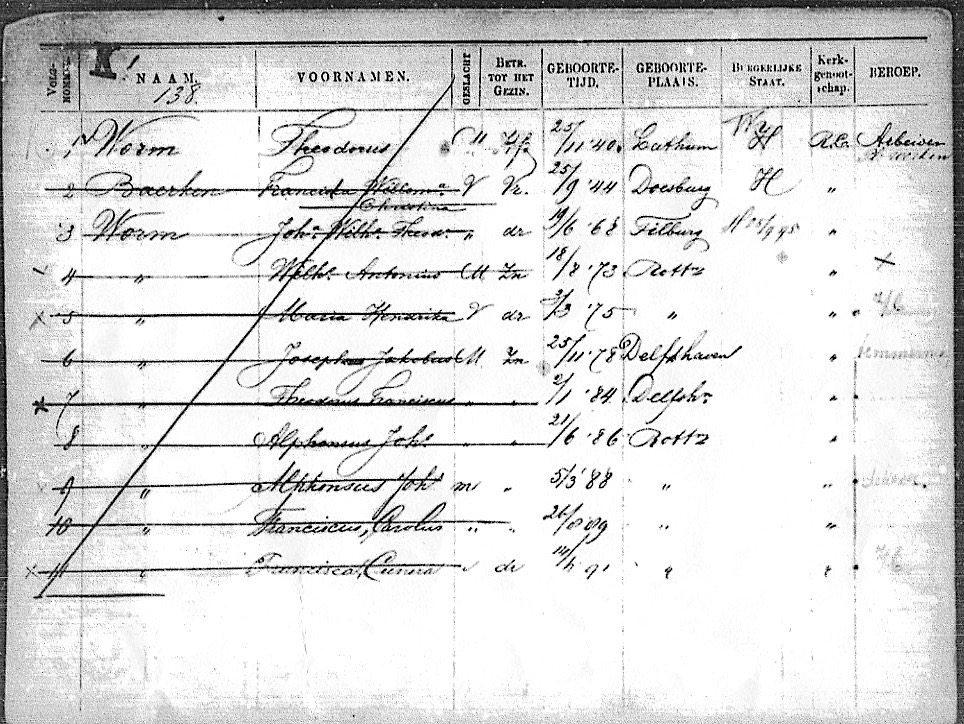 X!
VOLG-NOMMER. NAAM. VOORNAMEN. GESLACHT BETR. TOT HET GEZIN. GEBOORTE-TIJD. GEBOORTE-PLAATS. BURGERLIJKE STAAT. Kerk-genoot-schap. BEROEP.
138.
1 Worm Theodorus M Hfd 25/11 '40 Lathum Wr H R.C. Arbeider
2 Baerken Franciska Willema V Vr. 25/9 '44 Doesburg H "
Christina
3 Worm Joha Wilha Theoda " dr 19/6 '68 Tilburg "
4 " Wilh. Antonius M Zn 18/8 '73 Rott "
5 " Maria Hendrika V dr 2/3 '75 " "
6 " Josephus Jakobus M Zn 25/11 '78 Delfshaven "
7 " Theodorus Franciscus " " 2/1 '84 Delfsh. "
8 " Alphonsus Joh. " " 21/6 '86 Rott "
9 " Alphonsus Joh. m " 5/3 '88 " "
10 " Franciscus, Carolus " " " "
11 " Francisca, Cunera dr " "